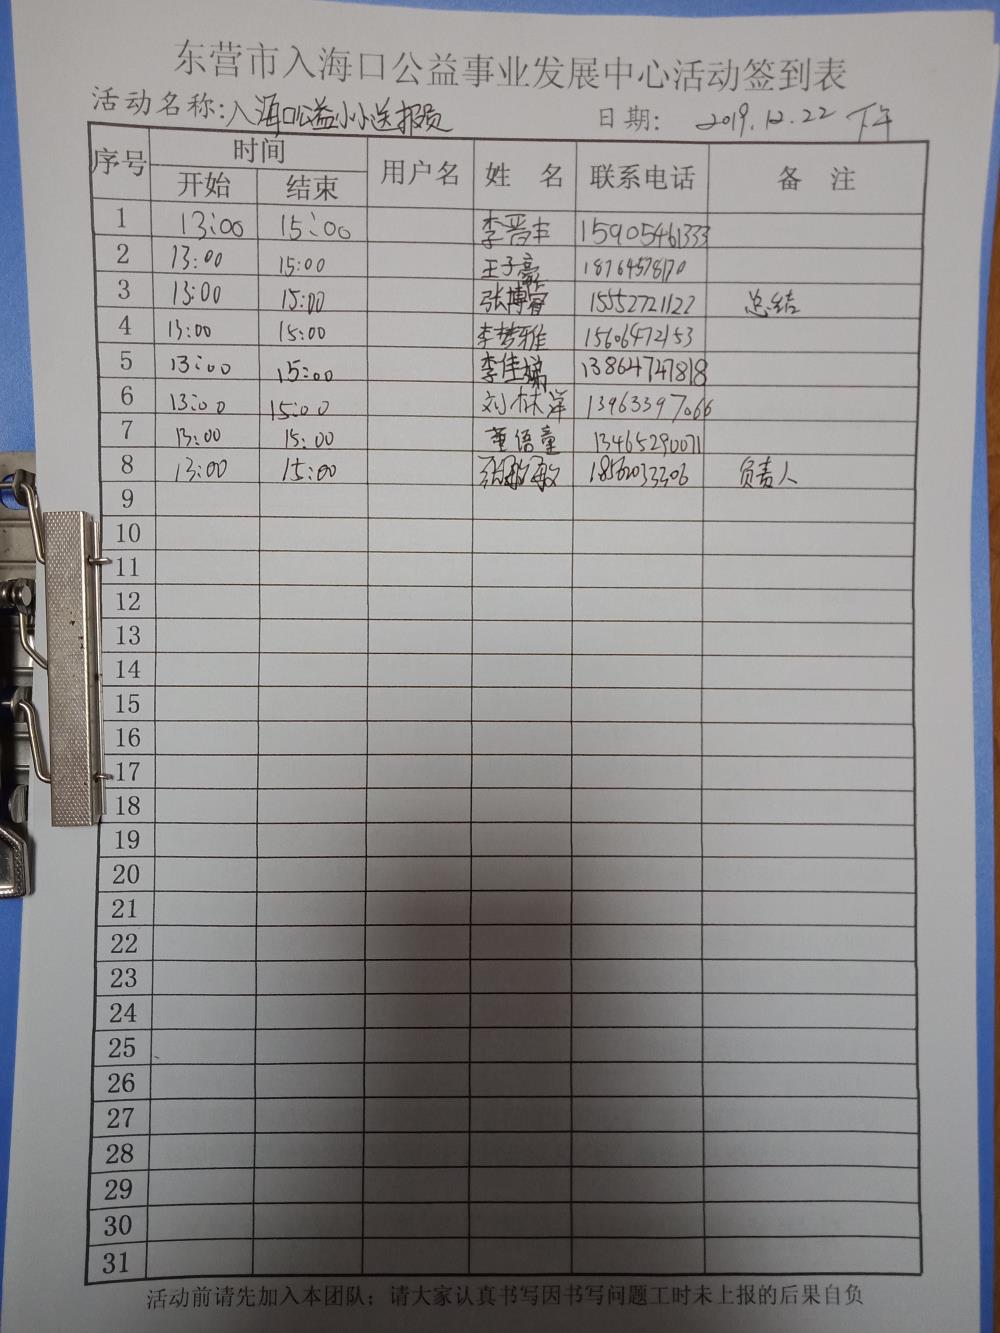 东营市入海口公益事业发展中心活动签到表
活动名称:入海口公益小小送报员 日期: 2019.12.22 下午
序号 时间 用户名 姓 名 联系电话 备 注
开始 结束
1 13:00 15:00 李晋丰 15905461333
2 13:00 15:00 王子豪 18764578170
3 13:00 15:00 张博睿 15552721122 总结
4 13:00 15:00 李梦雅 15606472153
5 13:00 15:00 李佳娣 13864747818
6 13:00 15:00 刘林洋 13963397066
7 13:00 15:00 董语童 13465290071
8 13:00 15:00 张敏 18562033306 负责人
9
10
11
12
13
14
15
16
17
18
19
20
21
22
23
24
25
26
27
28
29
30
31
活动前请先加入本团队；请大家认真书写因书写问题工时未上报的后果自负